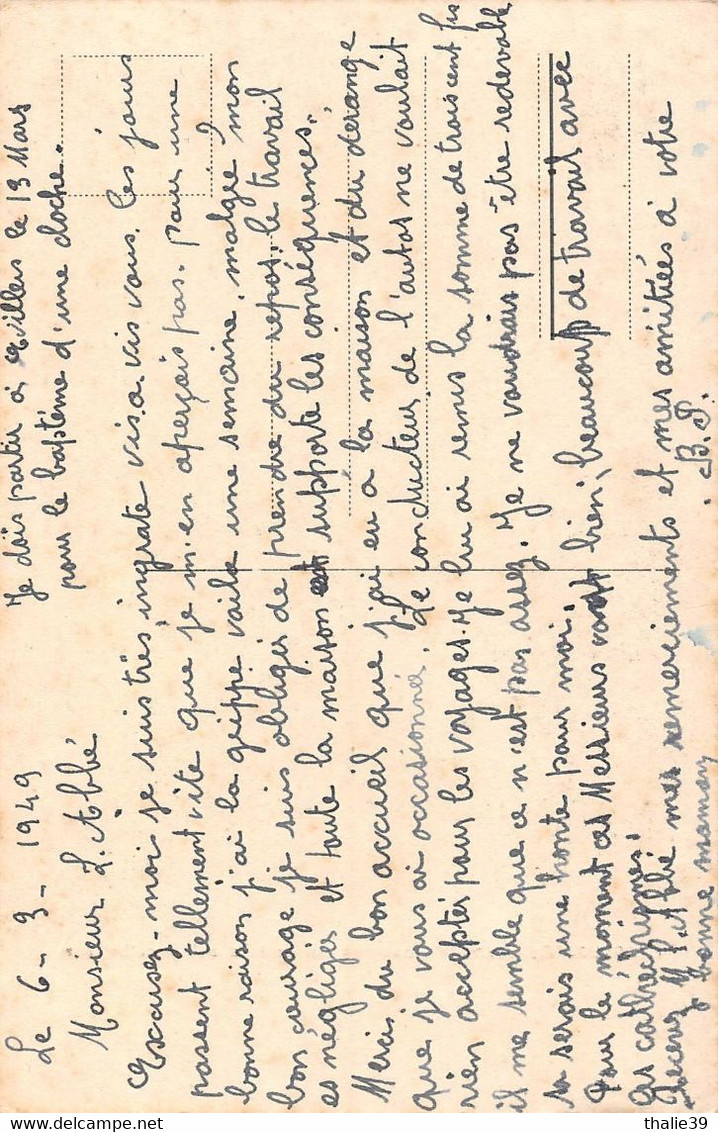 Le 6-3-1949
Je dois partir à Villers le 13 Mars
pour le baptême d'une cloche.
Monsieur L'Abbé
Excusez-moi je suis très ingrate vis.a.vis vous. les jours
passent tellement vite que je m'en aperçois pas. pour une
bonne raison j'ai la grippe voila une semaine, malgré mon
bon courage je suis obligés de prendre du repos, le travail
es négligés et toute la maison supporte les conséquences.
Merci du bon accueil que j'ai eu à la maison et du dérange
que je vous ai occasionné. Le conducteur de l'autos ne voulait
rien acceptés pour les voyages. Je lui ai remis la somme de trois cent frs
il me semble que ce n'est pas assez. Je ne voudrais pas être redevable
sa serais une honte pour moi.
Pour le moment ces Messieurs vont bien, beaucoup de travail avec
les cathéchismes.
Recevez M. L'Abbé mes remerciements et mes amitiées à votre
bonne maman
B.P.
thalie39